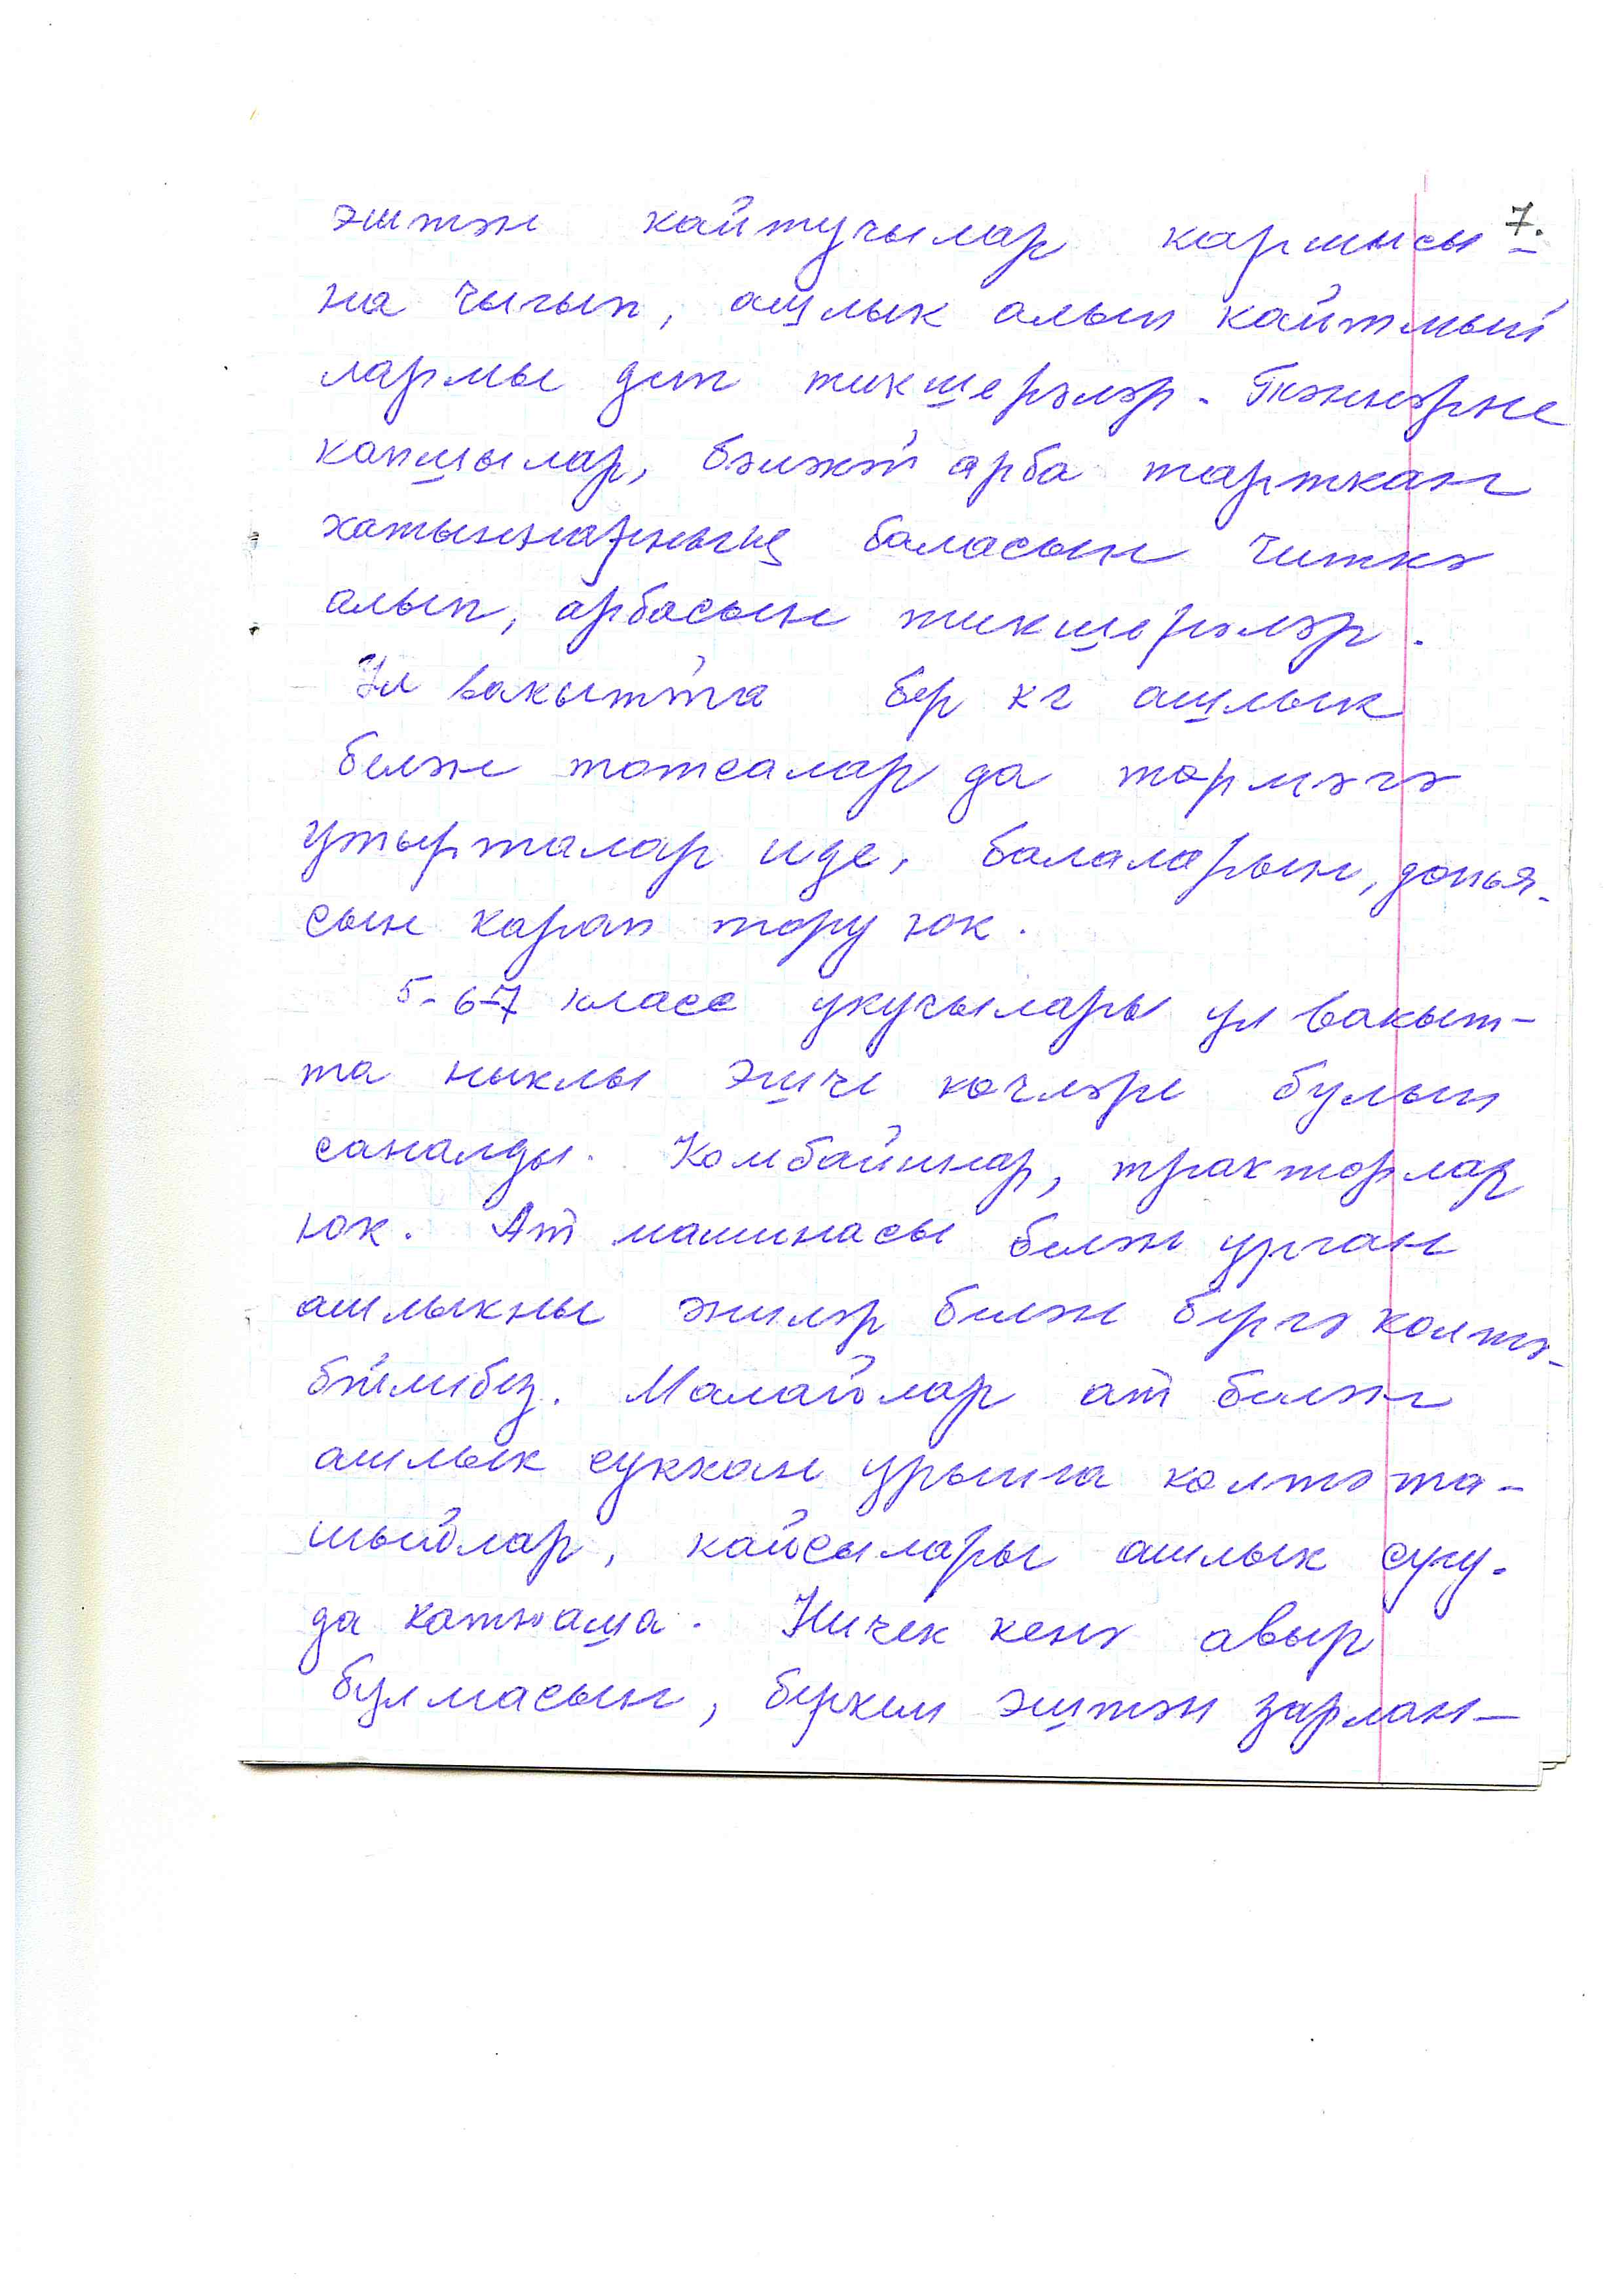 7.
эштән кайтучылар каршысы-
на чыгып, ашлык алып кайтмый
лармы дип тикшерәләр. Тәннәрне
капшылар, бәләкәй арба тарткан
хатыннарның баласын читкә
алып, арбасын тикшерәләр.
Ул вакытта бер кг ашлык
белән тотсалар да төрмәгә
утырталар иде, балаларын, донья-
сын карап тору юк.
5-6-7 класс укучылары ул вакыт-
та ныклы эшче көчләре булып
саналды. Комбайннар, тракторлар
юк. Ат машинасы белән урган
ашлыкны әниләр белән бергә көлтә-
бәйлибез. Малайлар ат белән
ашлык суккан урынга көлтә та-
шыйлар, кайсылары ашлык сугу-
да катнаша. Ничек кенә авыр
булмасын, беркем эштән зарлан-